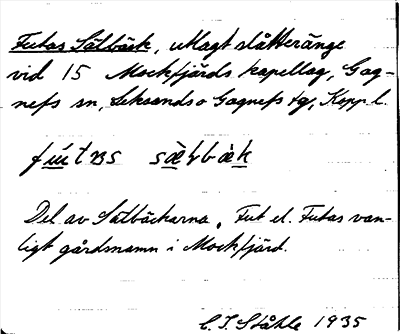 Futas Sälbäck, utlagt slåtteränge
vid 15 Mockfjärds kapellag, Gag-
nefs sn, Leksands o Gagnefs tg, Kopp l.
Del av Sälbäckarna. Fut el. Futas van-
ligt gårdsnamn i Mockfjärd.
C. I. Ståhle 1935